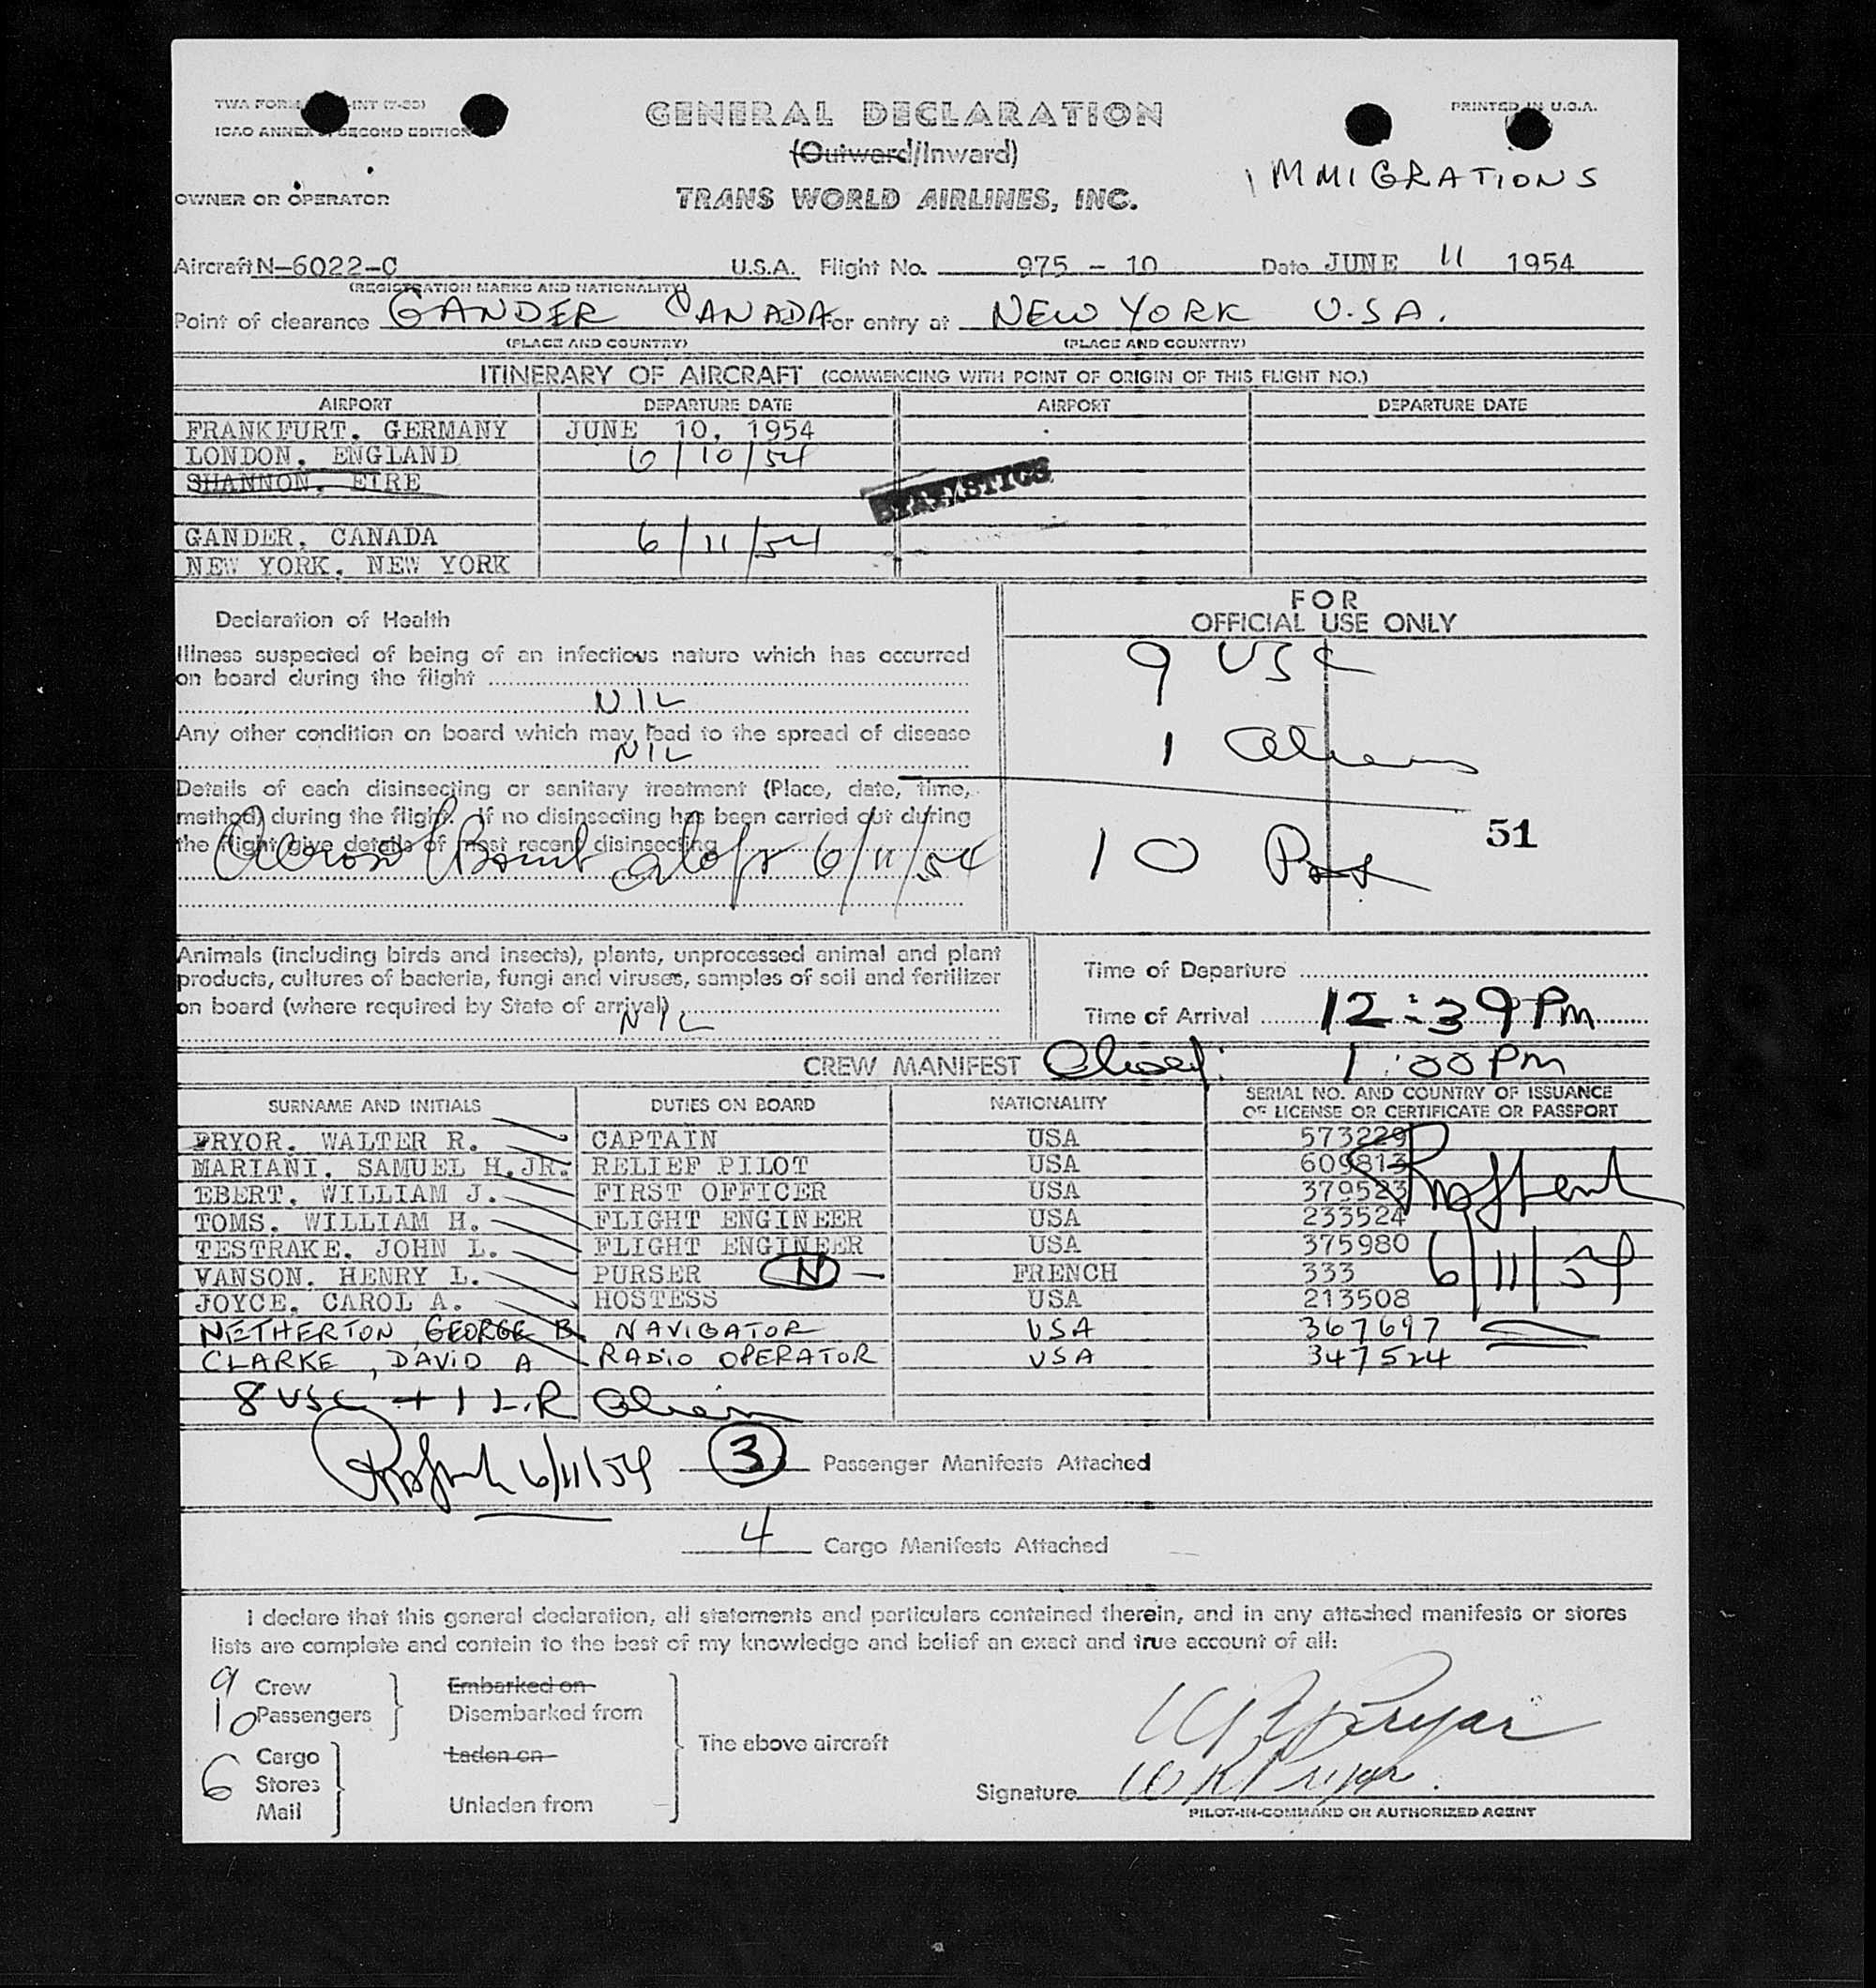 TWA FORM -INT (7-53)
ICAO ANNEX 9, SECOND EDITION
PRINTED IN U.S.A.
GENERAL DECLARATION
(Outward/Inward)
IMMIGRATIONS
OWNER OR OPERATOR
TRANS WORLD AIRLINES, INC.
Aircraft N-6022-C U.S.A. Flight No. 975 - 10 Date JUNE 11 1954
(REGISTRATION MARKS AND NATIONALITY)
Point of clearance GANDER CANADA For entry at NEW YORK U.S.A.
(PLACE AND COUNTRY) (PLACE AND COUNTRY)
ITINERARY OF AIRCRAFT (COMMENCING WITH POINT OF ORIGIN OF THIS FLIGHT NO.)
AIRPORT DEPARTURE DATE AIRPORT DEPARTURE DATE
FRANKFURT, GERMANY JUNE 10, 1954
LONDON, ENGLAND 6/10/54
SHANNON, EIRE
STATISTICS
GANDER, CANADA 6/11/54
NEW YORK, NEW YORK
Declaration of Health
Illness suspected of being of an infectious nature which has occurred
on board during the flight
NIL
Any other condition on board which may lead to the spread of disease
NIL
Details of each disinsecting or sanitary treatment (Place, date, time,
method) during the flight. If no disinsecting has been carried out during
the flight give details of most recent disinsecting
Aerosol Bomb aloft 6/11/54
FOR
OFFICIAL USE ONLY
9 USC
1 Aliens
10 Pax
51
Animals (including birds and insects), plants, unprocessed animal and plant
products, cultures of bacteria, fungi and viruses, samples of soil and fertilizer
on board (where required by State of arrival)
NIL
Time of Departure
Time of Arrival 12:39 PM
CREW MANIFEST 1:00 PM
SURNAME AND INITIALS DUTIES ON BOARD NATIONALITY SERIAL NO. AND COUNTRY OF ISSUANCE
OF LICENSE OR CERTIFICATE OR PASSPORT
PRYOR, WALTER R. CAPTAIN USA 573229
MARIANI, SAMUEL H.JR. RELIEF PILOT USA 609813
EBERT, WILLIAM J. FIRST OFFICER USA 379523
TOMS, WILLIAM H. FLIGHT ENGINEER USA 233524
TESTRAKE, JOHN L. FLIGHT ENGINEER USA 375980
VANSON, HENRY L. PURSER N FRENCH 333 6/11/54
JOYCE, CAROL A. HOSTESS USA 213508
NETHERTON, GEORGE B NAVIGATOR USA 367697
CLARKE, DAVID A RADIO OPERATOR USA 347524
8 USC + 1 L.R Alien
6/11/54 3 Passenger Manifests Attached
4 Cargo Manifests Attached
I declare that this general declaration, all statements and particulars contained therein, and in any attached manifests or stores
lists are complete and contain to the best of my knowledge and belief an exact and true account of all:
9 Crew
10 Passengers
Embarked on
Disembarked from
6 Cargo
Stores
Mail
Laden on
Unladen from
The above aircraft
W R Pryor
Signature W R Pryor
PILOT-IN-COMMAND OR AUTHORIZED AGENT